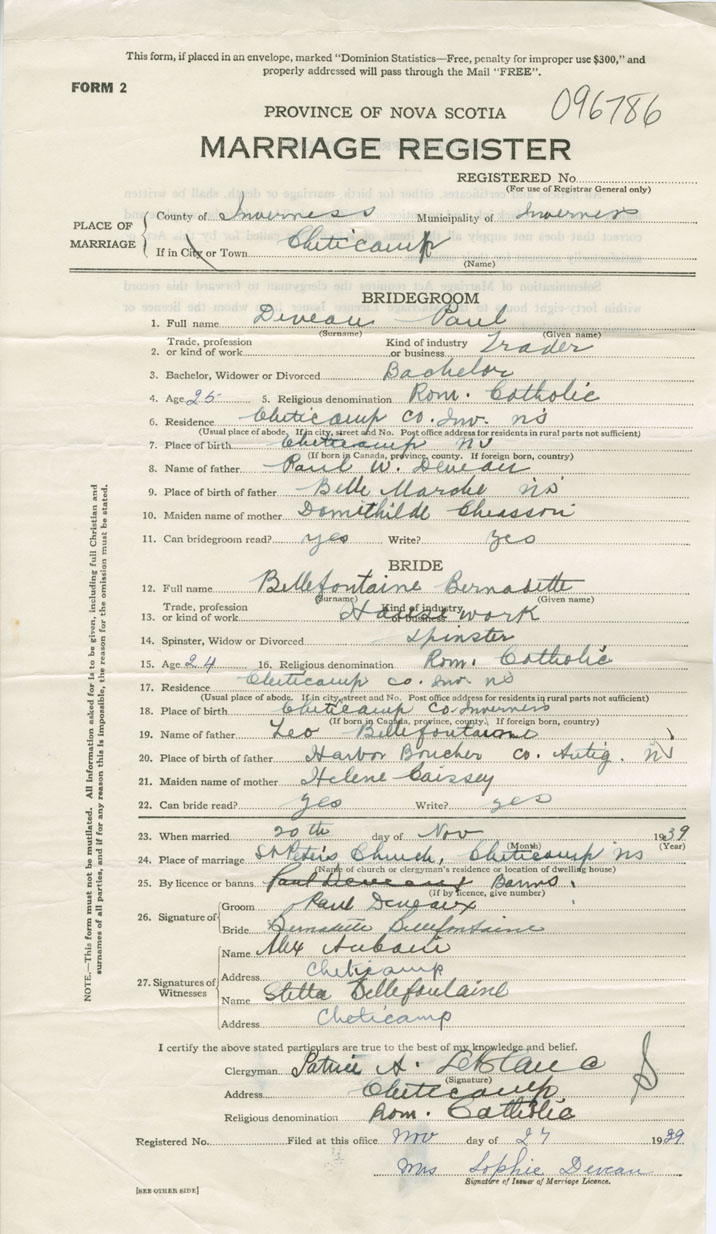 This form, if placed in an envelope, marked "Dominion Statistics—Free, penalty for improper use $300," and
properly addressed will pass through the Mail "FREE".
FORM 2
096786
PROVINCE OF NOVA SCOTIA
MARRIAGE REGISTER
REGISTERED No.
(For use of Registrar General only)
PLACE OF MARRIAGE
County of Inverness Municipality of Inverness
If in City or Town Cheticamp
(Name)
BRIDEGROOM
1. Full name Deveau Paul
(Surname) (Given name)
2. Trade, profession or kind of work Kind of industry or business Trader
3. Bachelor, Widower or Divorced Bachelor
4. Age 25 5. Religious denomination Rom. Catholic
6. Residence Cheticamp co. Inv. ns
(Usual place of abode. If in city, street and No. Post office address for residents in rural parts not sufficient)
7. Place of birth Cheticamp NS
(If born in Canada, province, county. If foreign born, country)
8. Name of father Paul W. Deveau
9. Place of birth of father Belle Marche ns
10. Maiden name of mother Domithilde Chiasson
11. Can bridegroom read? yes Write? yes
BRIDE
12. Full name Bellefontaine Bernadette
(Surname) (Given name)
13. Trade, profession or kind of work Kind of industry or business House work
14. Spinster, Widow or Divorced Spinster
15. Age 24 16. Religious denomination Rom. Catholic
17. Residence Cheticamp co. Inv ns
(Usual place of abode. If in city, street and No. Post office address for residents in rural parts not sufficient)
18. Place of birth Cheticamp Co. Inverness
(If born in Canada, province, county. If foreign born, country)
19. Name of father Leo Bellefontaine
20. Place of birth of father Harbor Boucher co. Antig. NS
21. Maiden name of mother Helene Caissey
22. Can bride read? yes Write? yes
23. When married 20th day of Nov 1939
(Month) (Year)
24. Place of marriage St Peters Church, Cheticamp ns
(Name of church or clergyman's residence or location of dwelling house)
25. By licence or banns Paul Deveaux Banns
(If by licence, give number)
26. Signature of
Groom Paul Deveaux
Bride Bernadette Bellefontaine
27. Signatures of Witnesses
Name Alex Aucoin
Address Cheticamp
Name Stella Bellefontaine
Address Cheticamp
I certify the above stated particulars are true to the best of my knowledge and belief.
Clergyman Patrice A. LeBlanc
(Signature)
Address Cheticamp
Religious denomination Rom. Catholic
Registered No. Filed at this office Nov day of 27 1939
Mrs Sophie Deveau
Signature of Issuer of Marriage Licence.
[SEE OTHER SIDE]
NOTE.—This form must not be mutilated. All information asked for is to be given, including full Christian and
surnames of all parties, and if for any reason this is impossible, the reason for the omission must be stated.